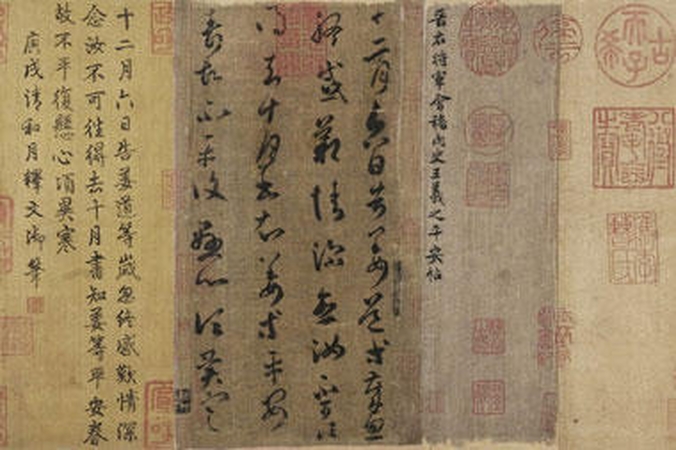 古希天子
八徵耄念之寶
晉右將軍會稽內史王羲之平安帖
十二月六日告姜道等歲忽
終感歎情深念汝不可往
得去十月書知姜等平安
壽故不平復懸心頃異寒
十二月六日告姜道等歲忽終感歎情深
念汝不可往得去十月書知姜等平安眷
故不平復懸心頃異寒
庚戌清和月釋文御筆